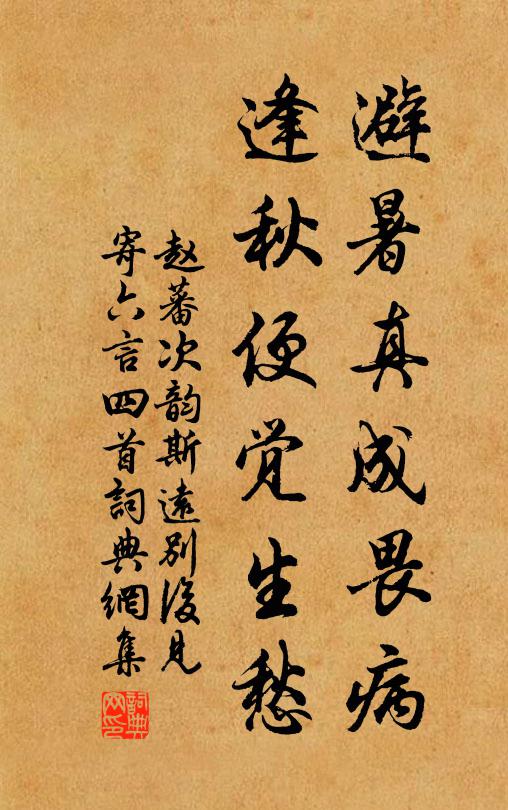 避暑真成畏病
逢秋便觉生愁
赵蕃次韵斯遠别後見
寄六言四首詞典網集
詞典网印